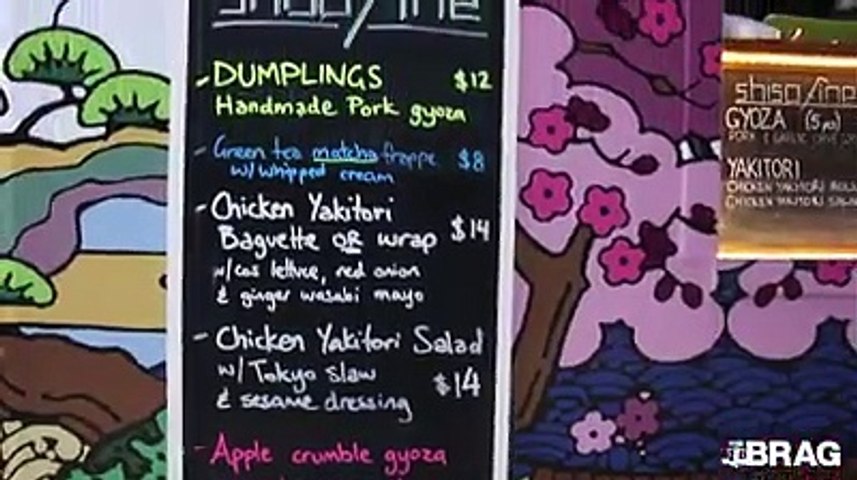 shiso/ine
- DUMPLINGS $12
Handmade Pork gyoza
- Green tea matcha frappe $8
w/ whipped cream
- Chicken Yakitori
Baguette OR wrap $14
w/cos lettuce, red onion
& ginger wasabi mayo
- Chicken Yakitori Salad
w/ Tokyo slaw $14
& sesame dressing
- Apple crumble gyoza
shiso/ine
GYOZA (5pc)
PORK & GARLIC CHIVE
YAKITORI
CHICKEN YAKITORI
CHICKEN YAKITORI
the BRAG